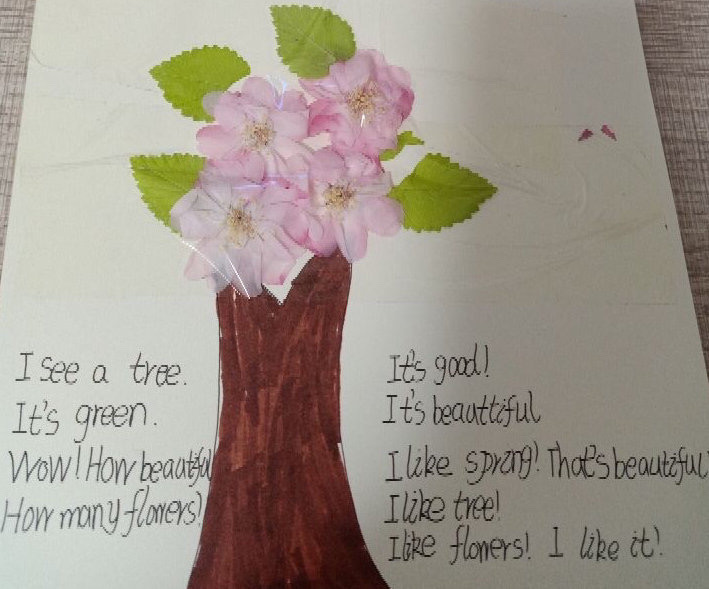 I see a tree.
It's green.
Wow! How beautiful
How many flowers!
It's good!
It's beauttiful
I like spring! That's beautiful
I like tree!
I like flowers! I like it!